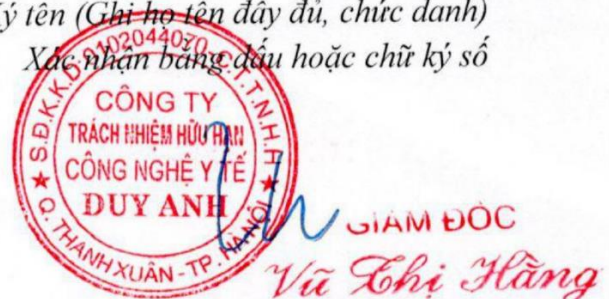 Ký tên (Ghi họ tên đầy đủ, chức danh)
Xác nhận bằng dấu hoặc chữ ký số
S.Đ.K.K.D:0102044070-C.T.T.N.H.H
CÔNG TY
TRÁCH NHIỆM HỮU HẠN
CÔNG NGHỆ Y TẾ
DUY ANH
Q. THANH XUÂN - TP. HÀ NỘI
GIÁM ĐỐC
Vũ Thị Hằng